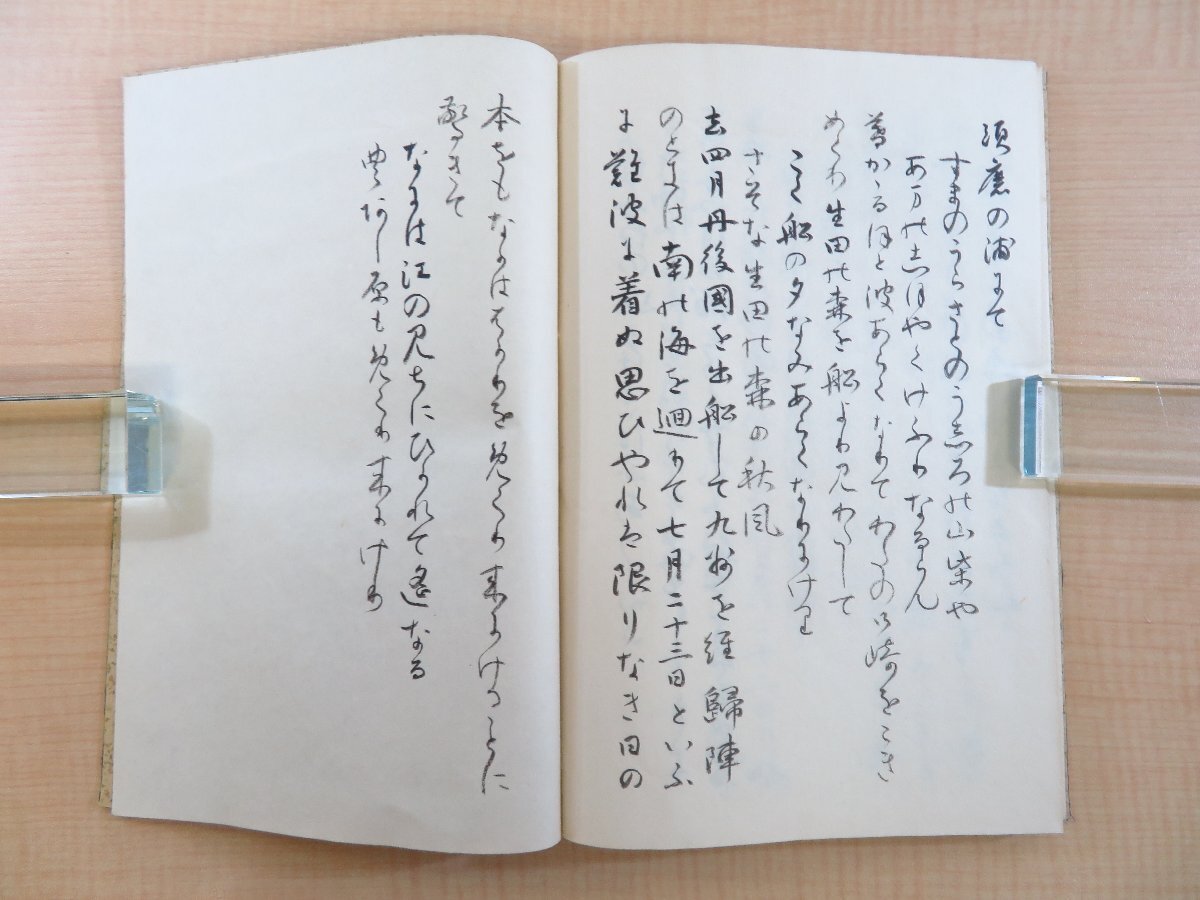 須磨の浦にて
すまのうらさとのうしろの山柴や
あまのしほやくけふりなるらん
暮かゝるほと波あらくなりてわたの御崎をこき
めくり生田の森を船より見わたして
こく船の夕なみあらくなりにけり
さそな生田の森の秋風
去四月丹後國を出船して九州を經歸陣
のときは南の海を廻りて七月二十三日といふ
に難波に着ぬ思ひやれは限りなき日の
本をもなかははかりをめくり来にけることに
驚きて
なには江の見ちにひかれて遙なる
豊あし原もめくり来にけり